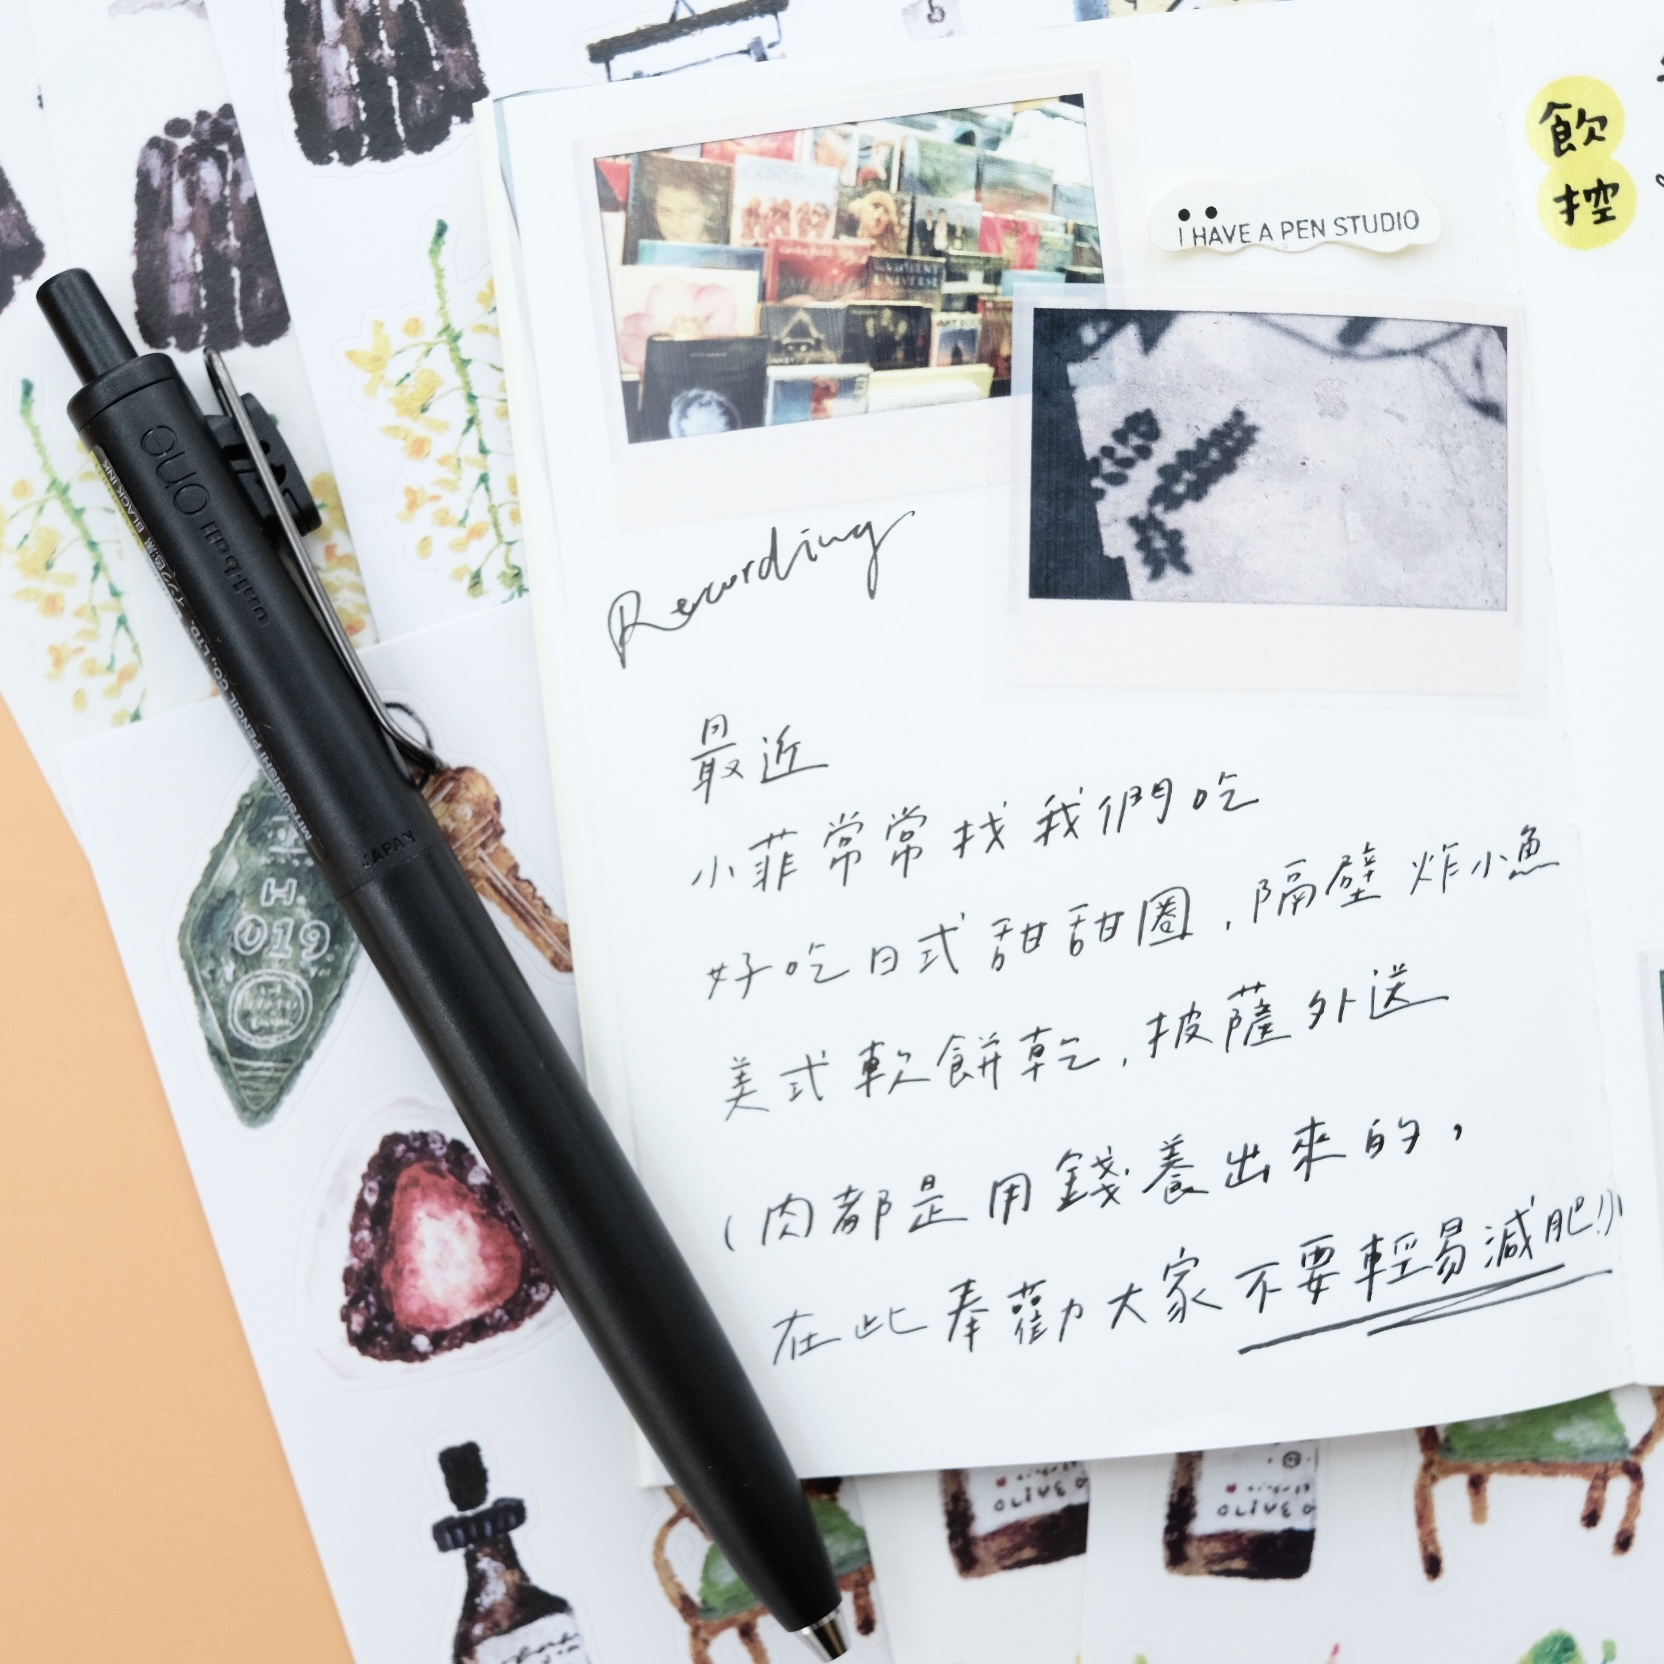 I HAVE A PEN STUDIO
飲控
Recording
最近
小菲常常找我們吃
好吃日式甜甜圈，隔壁炸小魚
美式軟餅乾，披薩外送
（肉都是用錢養出來的，
在此奉勸大家不要輕易減肥！！）
uni-ball one
BLACK INK
MITSUBISHI PENCIL CO., LTD.
JAPAN
H.
019
OLIVE
OLIVE